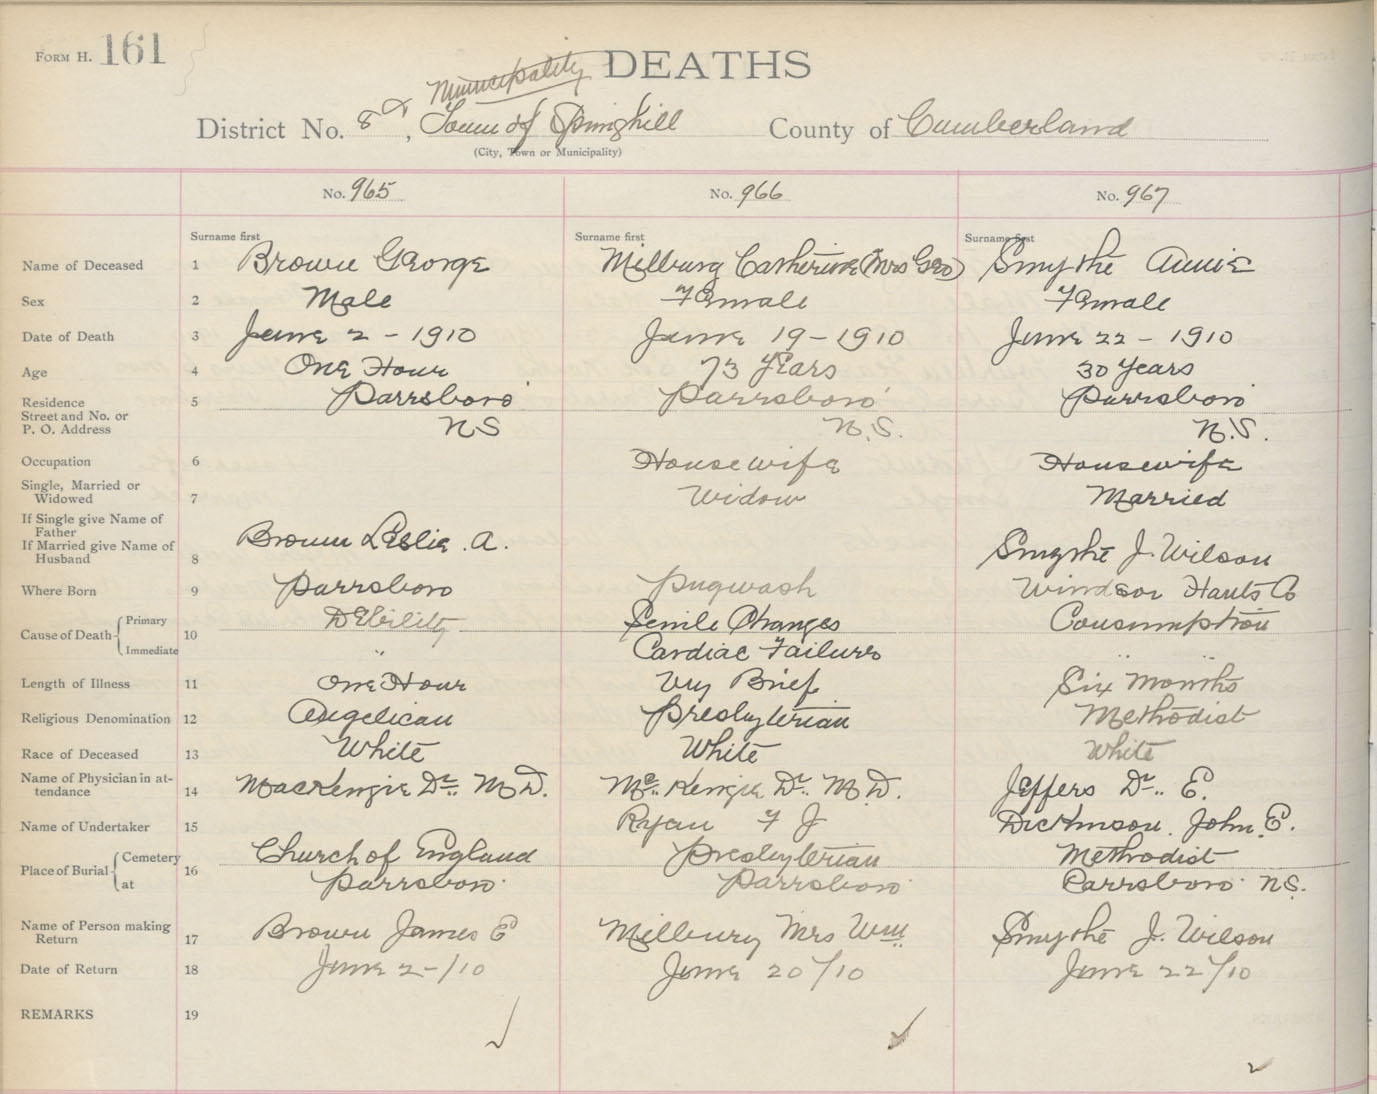 FORM H. 161
DEATHS
Municipality
District No. 8 a, Town of Springhill County of Cumberland
(City, Town or Municipality)
No. 965 No. 966 No. 967
Surname first Surname first Surname first
Name of Deceased 1 Brown George Milburg Catherine (Mrs Geo) Smythe Annie
Sex 2 Male Female Female
Date of Death 3 June 2 - 1910 June 19 - 1910 June 22 - 1910
Age 4 One Hour 73 Years 30 Years
Residence 5 Parrsboro Parrsboro Parrsboro
Street and No. or
P. O. Address NS N.S. N.S.
Occupation 6 Housewife Housewife
Single, Married or
Widowed 7 Widow Married
If Single give Name of
Father
If Married give Name of
Husband 8 Brown Leslie. A. Smythe J. Wilson
Where Born 9 Parrsboro Pugwash Windsor Hants Co
Cause of Death 10
Primary Debility Senile Changes Consumption
Immediate " Cardiac Failure "
Length of Illness 11 One Hour Very Brief Six Months
Religious Denomination 12 Angelican Presbyterian Methodist
Race of Deceased 13 White White White
Name of Physician in at-
tendance 14 MacKenzie Dr. M.D. Mc. Kenzie Dr. M.D. Jeffers Dr.. E.
Name of Undertaker 15 Ryan F J Dickinson. John. E.
Place of Burial 16
Cemetery Church of England Presbyterian Methodist
at Parrsboro Parrsboro Parrsboro NS.
Name of Person making
Return 17 Brown James E Milbury Mrs Wm Smythe J. Wilson
Date of Return 18 June 2-/10 June 20/10 June 22/10
REMARKS 19